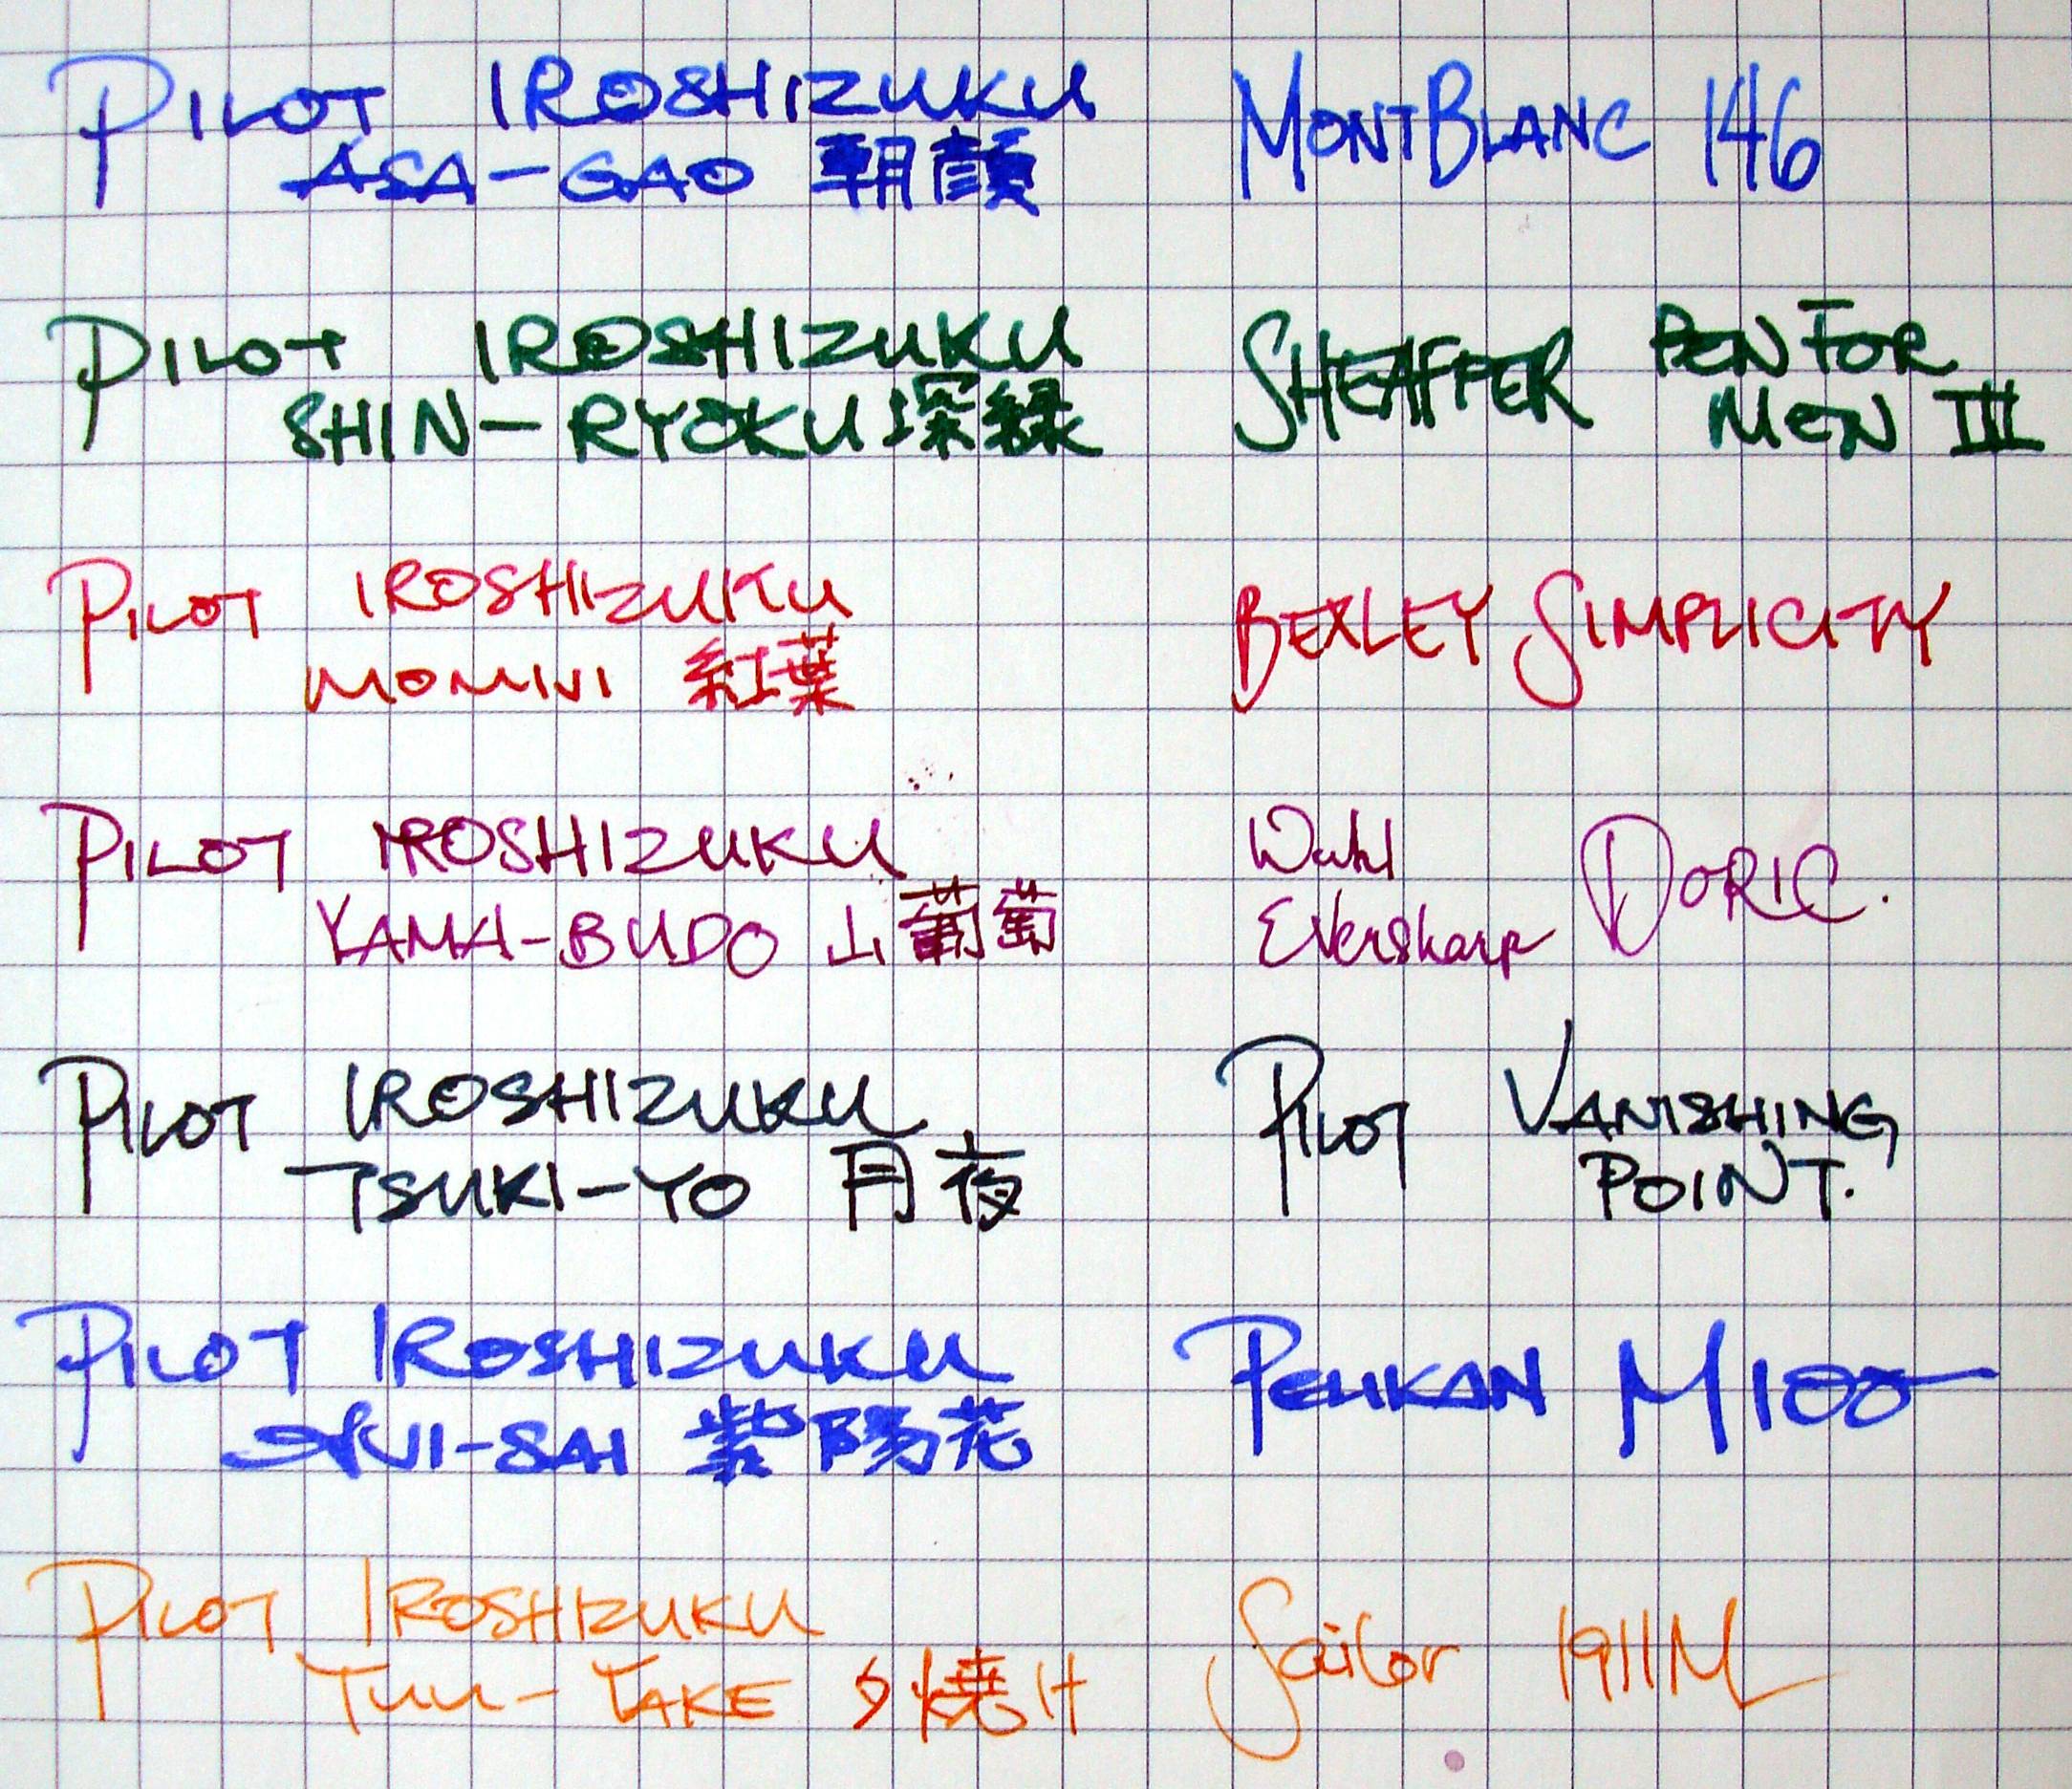 PILOT IROSHIZUKU
ASA-GAO 朝顔
MONTBLANC 146
PILOT IROSHIZUKU
SHIN-RYOKU 深緑
SHEAFFER PEN FOR
MEN III
PILOT IROSHIZUKU
MOMIJI 紅葉
BEXLEY SIMPLICITY
PILOT IROSHIZUKU
YAMA-BUDO 山葡萄
Wahl
Eversharp DORIC.
PILOT IROSHIZUKU
TSUKI-YO 月夜
PILOT VANISHING
POINT.
PILOT IROSHIZUKU
AJI-SAI 紫陽花
PELIKAN M100
PILOT IROSHIZUKU
YUU-YAKE 夕焼け
Sailor 1911M